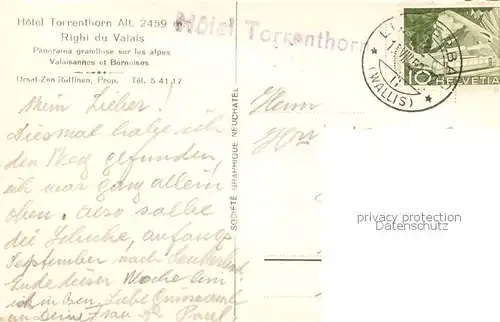 Hôtel Torrenthorn Alt. 2459 m
Righi du Valais
Panorama grandiose sur les alpes
Valaisannes et Bernoises
Orsat-Zen Ruffinen, Prop. Tél. 5 41 17
Hôtel Torrenthorn
(WALLIS)
10 HELVETIA
Mein Lieber.
Diesmal habe ich
den Weg gefunden,
ich war ganz allein
oben. Also solle
die Schuhe, anfangs
September nach
Ende dieser Woche bin
ich in Bern. Liebe
an Deine Frau Paul
SOCIÉTÉ GRAPHIQUE NEUCHATEL
Herrn
privacy protection
Datenschutz